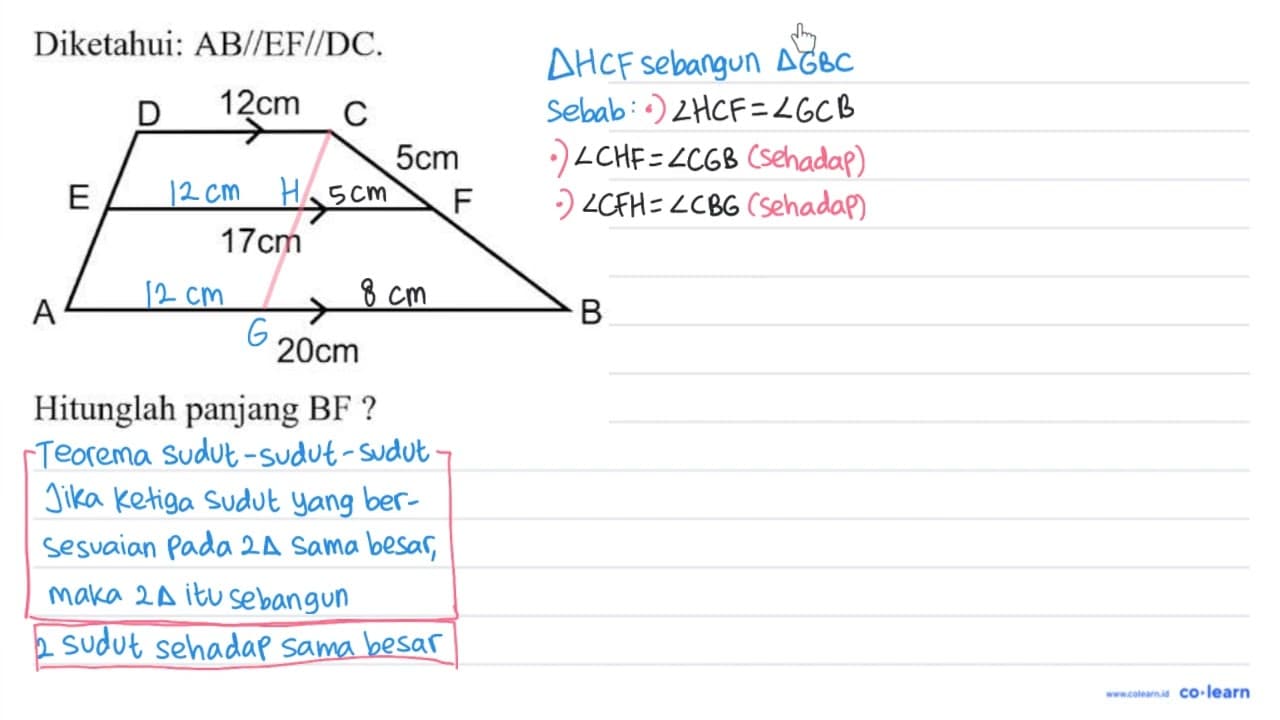 Diketahui: AB//EF//DC.
D 12cm C
5cm
E 12 cm H 5 cm F
17cm
12 cm 8 cm
A B
G 20cm
Hitunglah panjang BF ?
Teorema sudut-sudut-sudut
Jika ketiga sudut yang ber-
sesuaian pada 2Δ sama besar,
maka 2Δ itu sebangun
2 sudut sehadap sama besar
ΔHCF sebangun ΔGBC
Sebab: •) ∠HCF=∠GCB
•) ∠CHF=∠CGB (sehadap)
•) ∠CFH=∠CBG (sehadap)
www.colearn.id co·learn